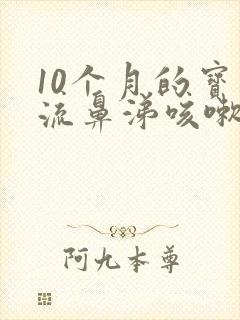 10个月的宝
流鼻涕咳嗽
阿九本尊